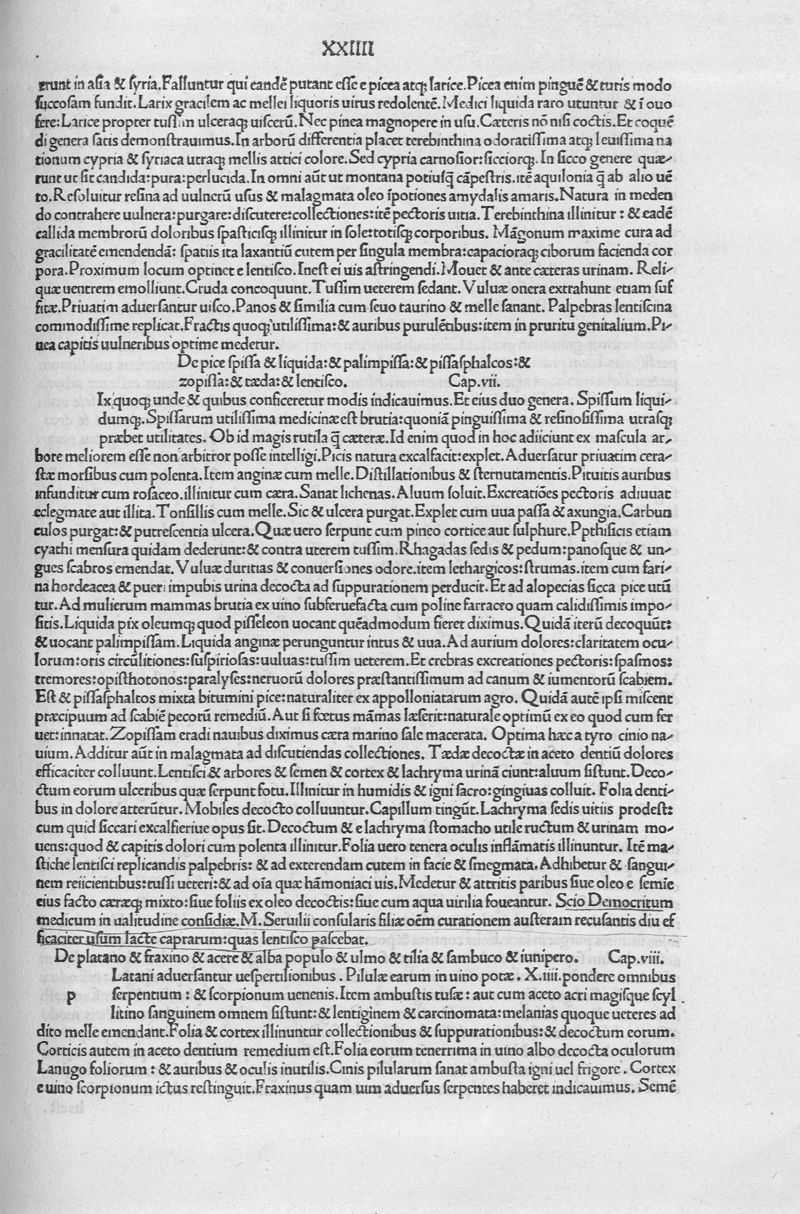 XXIIII
erunt in asia & syria.Falluntur qui eandē putant esse e picea atq; larice.Picea enim pinguē & turis modo
succosam fundit.Larix gracilem ac mellei liquoris uirus redolentē.Medici liquida raro utuntur & ī ouo
fere:Larice propter tussim ulceraq; uiscerū.Nec pinea magnopere in usu.Cæteris nō nisi coctis.Et coquē
di genera satis demonstrauimus.In arborū differentia placet terebinthina odoratissima atq; leuissima na
tionum cypria & syriaca utraq; mellis attici colore.Sed cypria carnosior:sicciorq;.In sicco genere quæ⸗
runt ut sit candida:pura:perlucida.In omni aūt ut montana potiusq̄ cāpestris.itē aquilonia q̄ ab alio uē
to.Resoluitur resina ad uulnerū usus & malagmata oleo īpotiones amydalis amaris.Natura in meden
do contrahere uulnera:purgare:discutere:collectiones:itē pectoris uitia.Terebinthina illinitur : & eadē
callida membrorū doloribus spasticisq; illinitur in sole:totisq; corporibus. Māgonum maxime cura ad
gracilitatē emendendā: spatiis ita laxantiū cutem per singula membra:capacioraq; ciborum facienda cor
pora.Proximum locum optinet e lentisco.Inest ei uis astringendi.Mouet & ante cæteras urinam. Reli⸗
quæ uentrem emolliunt.Cruda concoquunt.Tussim ueterem sedant.Vuluæ onera extrahunt etiam suf
fitæ.Priuatim aduersantur uisco.Panos & similia cum seuo taurino & melle sanant. Palpebras lentiscina
commodissime replicat.Fractis quoq; utilissima:& auribus purulētibus:item in pruritu genitalium.Pi⸗
nea capitis uulneribus optime medetur.
De pice spissa & liquida:& palimpissa:& pissasphalcos:&
zopissa:& tæda:& lentisco. Cap.vii.
Ix quoq; unde & quibus conficeretur modis indicauimus.Et eius duo genera. Spissum liqui⸗
dumq;.Spissarum utilissima medicinæ est brutia:quoniā pinguissima & resinosissima utrasq;
præbet utilitates. Ob id magis rutila q̄ cæteræ.Id enim quod in hoc adiiciunt ex mascula ar⸗
bore meliorem esse non arbitror posse intelligi.Picis natura excalfacit:explet.Aduersatur priuatim cera⸗
stæ morsibus cum polenta.Item anginæ cum melle.Distillationibus & sternutamentis.Pituitis auribus
infunditur cum rosaceo.illinitur cum cæra.Sanat lichenas.Aluum soluit.Excreatiōes pectoris adiuuat
eclegmate aut illita.Tonsillis cum melle.Sic & ulcera purgat.Explet cum uua passa & axungia.Carbun
culos purgat:& putrescentia ulcera.Quæ uero serpunt cum pineo cortice aut sulphure.Ppthisicis etiam
cyathi mensura quidam dederunt:& contra uterem tussim.Rhagadas sedis & pedum:panosque & un⸗
gues scabros emendat.Vuluæ duritias & conuersiones odore.item lethargicos:strumas.item cum fari⸗
na hordeacea & pueri impubis urina decocta ad suppurationem perducit.Et ad alopecias sicca pice utū
tur.Ad mulierum mammas brutia ex uino subferuefacta cum poline farraceo quam calidissimis impo⸗
sitis.Liquida pix oleumq; quod pisseleon uocant quēadmodum fieret diximus.Quidā iterū decoquūt:
& uocant palimpissam.Liquida anginæ perunguntur intus & uua.Ad aurium dolores:claritatem ocu⸗
lorum:oris circūlitiones:suspiriosas:uuluas:tussim ueterem.Et crebras excreationes pectoris:spasmos:
tremores:opisthotonos:paralyses:neruorū dolores præstantissimum ad canum & iumentorū scabiem.
Est & pissasphaltos mixta bitumini pice:naturaliter ex appolloniatarum agro. Quidā autē ipsi miscent
præcipuum ad scabiē pecorū remediū.Aut si fœtus māmas læserit:naturale optimū ex eo quod cum fer
uet:innatat.Zopissam eradi nauibus diximus cæra marino sale macerata. Optima hæc a tyro cinio na⸗
uium.Additur aūt in malagmata ad discutiendas collectiones. Tædæ decoctæ in aceto dentiū dolores
efficaciter colluunt.Lentisci & arbores & semen & cortex & lachryma urinā ciunt:aluum sistunt.Deco⸗
ctum eorum ulceribus quæ serpunt fotu.Illinitur in humidis & igni sacro:gingiuas colluit. Folia denti⸗
bus in dolore atterūtur.Mobiles decocto colluuntur.Capillum tingūt.Lachryma sedis uitiis prodest:
cum quid siccari excalfieriue opus sit.Decoctum & e lachryma stomacho utile ructum & urinam mo⸗
uens:quod & capitis dolori cum polenta illinitur.Folia uero tenera oculis inflāmatis illinuntur. Itē ma⸗
stiche lentisci replicandis palpebris: & ad exterendam cutem in facie & smegmata.Adhibetur & sangui⸗
nem reiicientibus:tussi ueteri:& ad oīa quæ hāmoniaci uis.Medetur & attritis paribus siue oleo e semie
eius facto cæræq; mixto:siue foliis ex oleo decoctis:siue cum aqua uirilia foueantur. Scio Democritum
medicum in ualitudine confidiæ.M. Seruilii consularis filiæ oēm curationem austeram recusantis diu ef
ficaciter usum lacte caprarum:quas lentisco pascebat.
De platano & fraxino & acere & alba populo & ulmo & tilia & sambuco & iunipero. Cap.viii.
Latani aduersantur uespertilionibus . Pilulæ earum in uino potæ . X.iiii.pondere omnibus
p serpentium : & scorpionum uenenis.Item ambustis tusæ : aut cum aceto acri magisque scyl
litino sanguinem omnem sistunt:& lentiginem & carcinomata:melanias quoque ueteres ad
dito melle emendant.Folia & cortex illinuntur collectionibus & suppurationibus:& decoctum eorum.
Corticis autem in aceto dentium remedium est.Folia eorum tenerrima in uino albo decocta oculorum
Lanugo foliorum : & auribus & oculis inutilis.Cinis pilularum sanat ambusta igni uel frigore . Cortex
e uino scorpionum ictus restinguit.Fraxinus quam uim aduersus serpentes haberet indicauimus. Semē